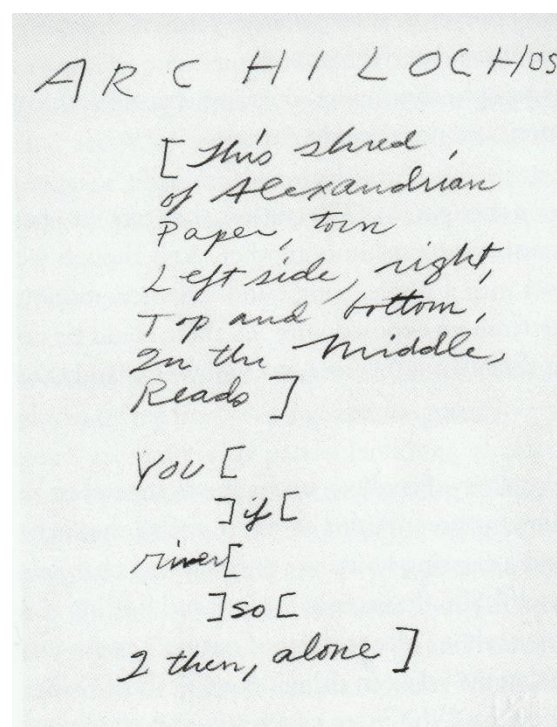 ARCHILOCHOS
[This shred,
of Alexandrian
Paper, torn
Left side, right,
Top and bottom,
In the Middle,
Reads]
You [
]if[
river[
]so[
I then, alone]